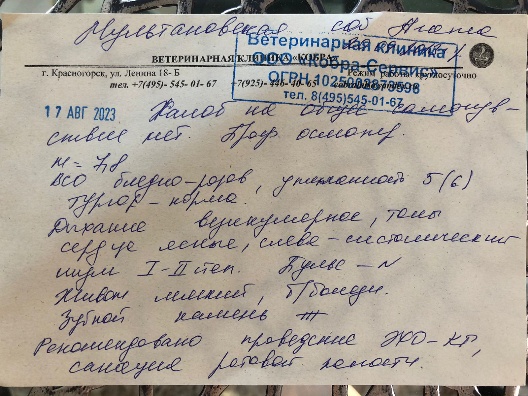 Мультановская соб Агата
ВЕТЕРИНАРНАЯ КЛИНИКА «КОБРА»
Ветеринарная клиника
ООО «Кобра-Сервис»
ОГРН
тел. 8(495)545-01-67
г. Красногорск, ул. Ленина 18- Б
Режим работы: круглосуточно
тел. +7(495)- 545- 01- 67 +7(925)- 446- 40- 65
17 АВГ 2023 Жалоб на общее самочув-
ствие нет. Проф осмотр.
m = 7,8
ВСО бледно-розов, упитанность 5(6)
тургор - норма.
Дыхание везикулярное, тоны
сердца ясные, слева - систолический
шум I-II степ. Пульс - N
Живот мягкий, б/болезн.
Зубной камень
Рекомендовано проведение ЭХО-КГ,
санация ротовой полости.